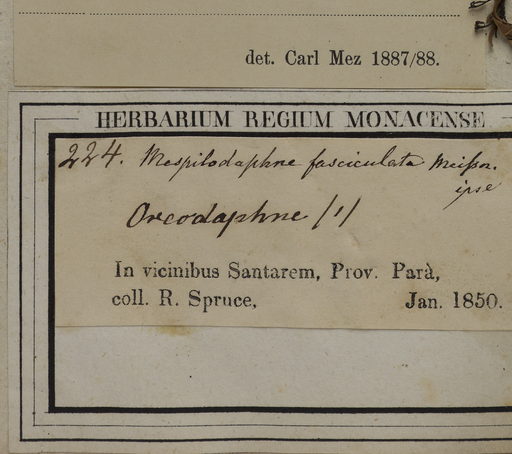 det. Carl Mez 1887/88.
HERBARIUM REGIUM MONACENSE
224. Mespilodaphne fasciculata Meissn.
ipse
Oreodaphne (1)
In vicinibus Santarem, Prov. Parà,
coll. R. Spruce, Jan. 1850.